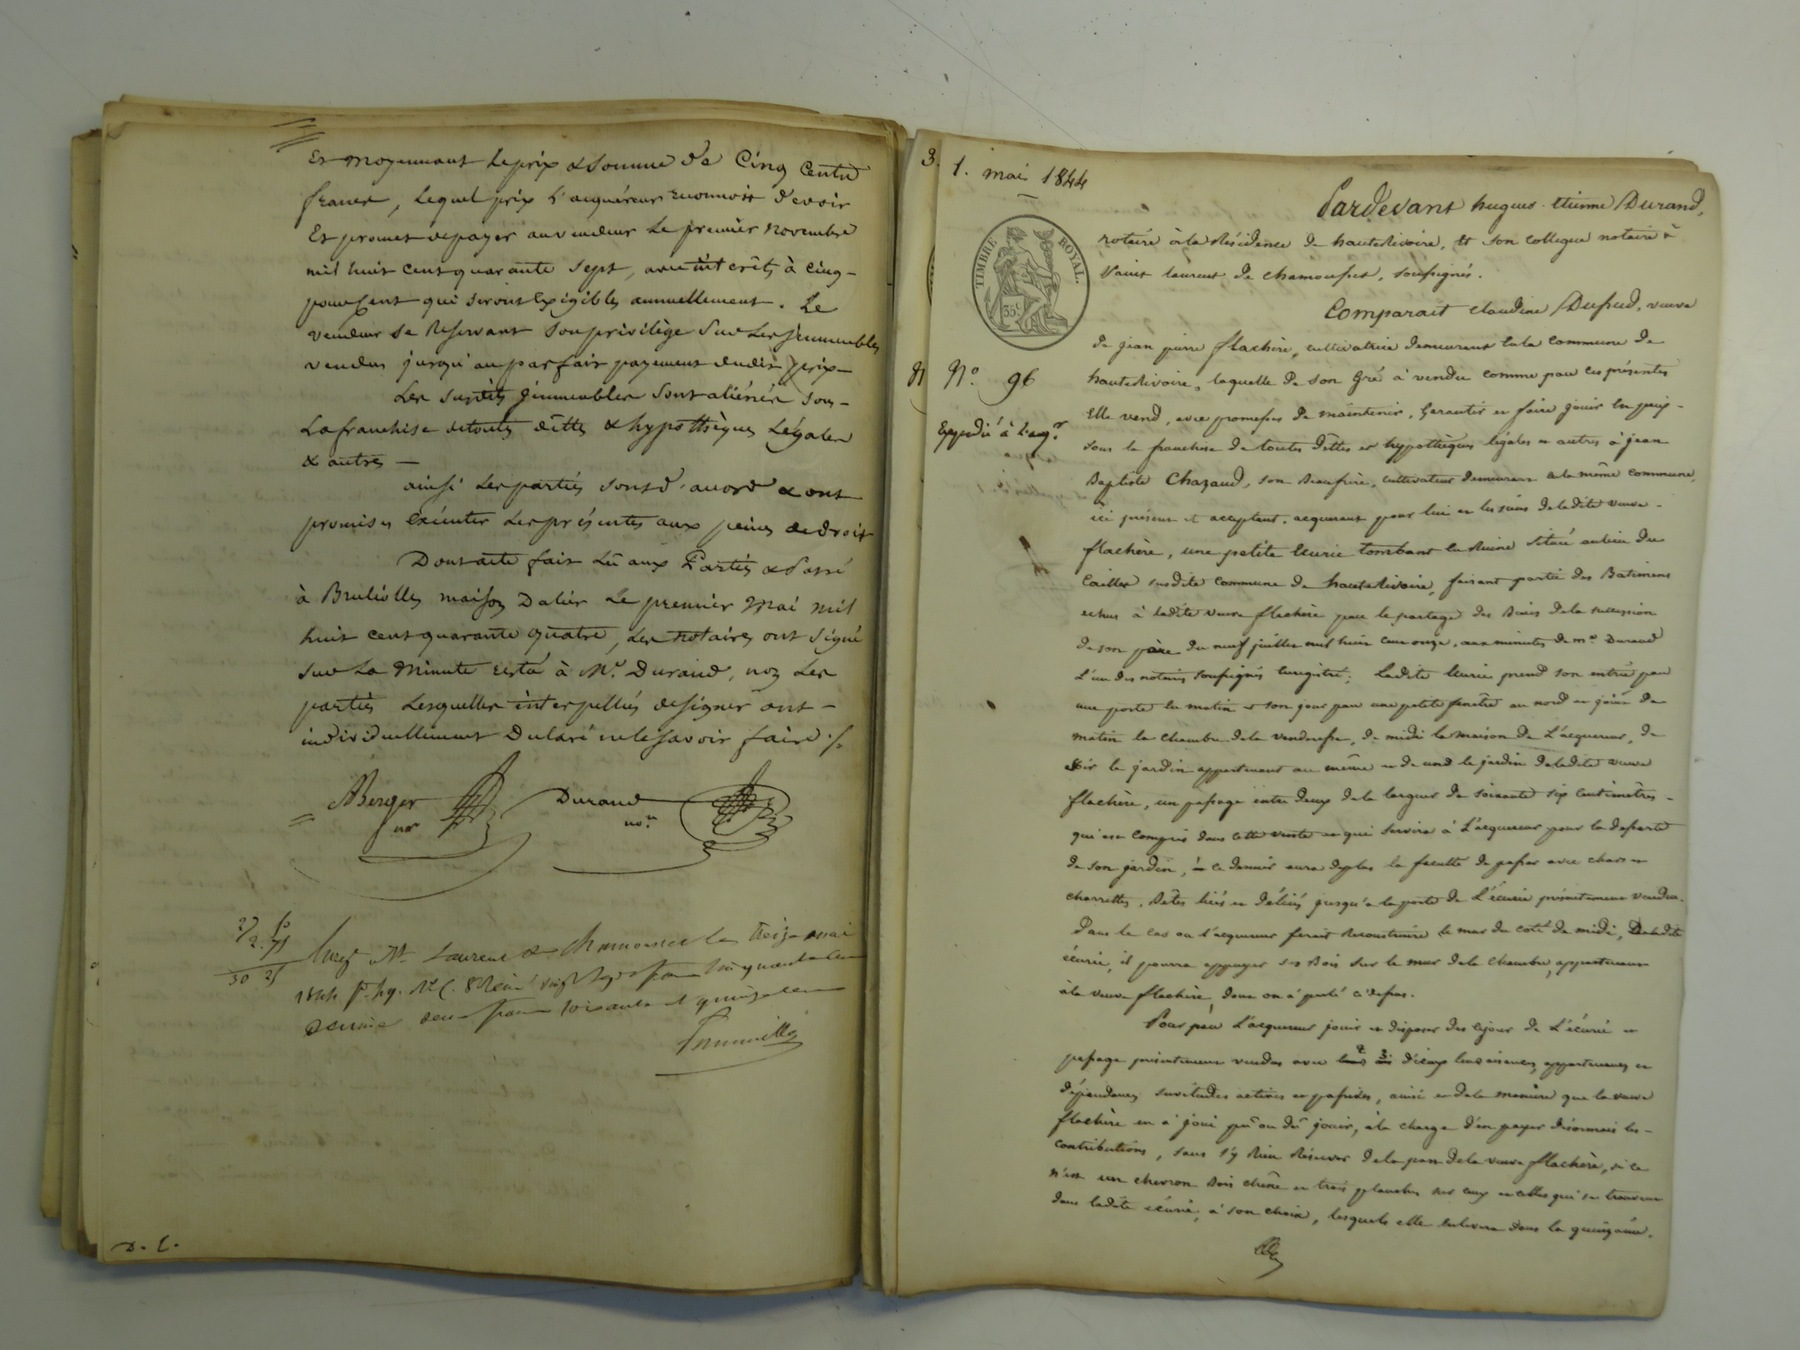 Et moyennant le prix & somme de Cinq Cents
francs, lequel prix l'acquéreur reconnoit devoir
Et promet de payer au vendeur le premier novembre
mil huit cent quarante sept, avec intérêts à cinq
pour cent qui seront Exigibles annuellement. Le
vendeur se Réservant son privilège sur les jmmeubles
vendus jusqu'au parfait payement dudit prix
Les susdits jmmeubles sont aliénés sous
La franchise de touttes dettes & hypothèques Légales
& autres
ainsi les parties sont d'accord & ont
promis exécuter les présentes aux peines de droit
Dont acte fait Lû aux Parties & Passé
à Brullioles maison Le premier Mai mil
huit cent quarante quatre, les notaires ont signé
sur La Minute restée à Me. Durand, non Les
parties Lesquelles interpellées de signer ont
individuellement Déclaré ne le savoir faire ./.
ABerger
nore
Durand
nore
27 50
2. 75
30 25
St Laurent de Chamousset le treize mai
1844
décime deux francs soixante et quinze
D. C.
3.
1. mai 1844
TIMBRE ROYAL
35c
N.o 96
Expédié à l'acqr
Pardevant hugues Etienne Durand,
notaire à la Résidence de hauterivoire, Et son collegue notaire à
saint laurent de chamousset, soussignés.
Comparait claudine Dupud, veuve
de jean pierre flachère, cultivatrice demeurant en la commune de
hauterivoire, laquelle de son Gré à vendu comme par ces présentes
Elle vend, avec promesse de maintenir, Garantir et faire jouir en paix
sous la franchise de toutes dettes et hypothèques légales et autres à jean
Baptiste Chazaud, son Beaufrère, cultivateur demeurant en la même commune,
ici présent et acceptant, acquerant pour lui et les siens de ladite veuve
flachère, une petite Ecurie tombant en Ruine située au lieu du
Cailler susdite commune de hauterivoire, faisant partie des Batimens
echus à ladite veuve flachère par le partage des Biens de la succession
de son père du neuf juillet mil huit cent onze, aux minutes de me. Durand
L'un des notaires soussignés Enregistré; Ladite Ecurie prend son entrée par
une porte en matin et son jour par une petite fenêtre au nord et joint de
matin la chambre de la venderesse, de midi la maison de L'acquereur, de
soir le jardin appartenant au même et de nord le jardin de ladite veuve
flachère, un passage entre deux de la largeur de soixante six Centimètres
qui est compris dans cette vente et qui servira à L'acquereur pour la desserte
de son jardin, & ce dernier aura de plus la faculté de passer avec chars et
charrettes, Bêtes liées et déliées jusqu'à la porte de L'écurie présentement vendue.
Dans le cas ou l'acquereur ferait Reconstruire le mur du coté de midi, De ladite
écurie, il pourra appuyer ses Bois sur le mur de la chambre appartenant
à la veuve flachère dont on à parlé ci dessus.
Pour par L'acquereur jouir et disposer dès cejour de L'écurie et
passage présentement vendus avec leurs aisances, appartenances et
dépendances, servitudes actives et passives, ainsi et de la manière que la veuve
flachère en à joui pû ou dû jouir, à la charge d'en payer désormais les
contributions, sans s'y Rien Réserver de la part de la veuve flachère, si ce
n'est un chevron Bois chêne et trois planches sur ceux et celles qui se trouvent
dans ladite écurie, à son choix, lesquels elle enlevera dans la quinzaine.